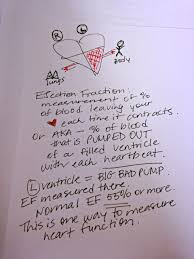 R L
lungs
Body
Ejection Fraction:
measurement of %
of blood leaving your
each time it contracts.
Or AKA - % of blood
that is PUMPED OUT
of a filled ventricle
with each heartbeat.
L ventricle = BIG BAD PUMP.
EF measured there.
Normal EF 55% or more.
This is one way to measure
heart function.